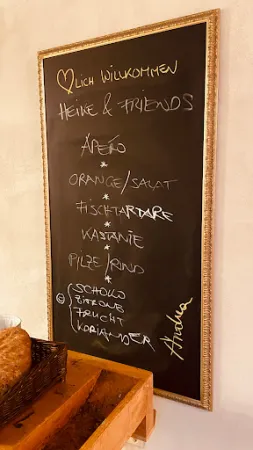 ♡LICH WILLKOMMEN
HEIKE & FRIENDS
APÉRO
*
ORANGE/SALAT
*
FISCHTARTARE
*
KASTANIE
*
PILZE/RIND
*
☺ { SCHOKO
ZITRONE
FRUCHT
KORIANDER
Andrea